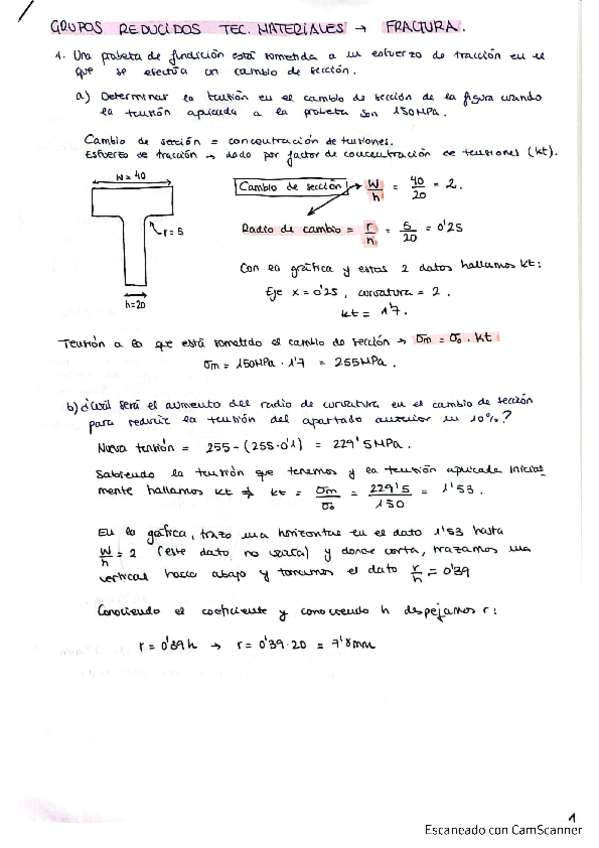 GRUPOS REDUCIDOS TEC. MATERIALES → FRACTURA.
1. Una probeta de fundición está sometida a un esfuerzo de tracción en el
que se efectúa un cambio de sección.
a) Determinar la tensión en el cambio de sección de la figura cuando
la tensión aplicada a la probeta son 150MPa.
Cambio de sección = concentración de tensiones.
Esfuerzo de tracción → dado por factor de concentración de tensiones (kt).
W = 40
r = 5
h = 20
Cambio de sección → W/h = 40/20 = 2.
Radio de cambio = r/h = 5/20 = 0'25
Con la gráfica y estos 2 datos hallamos kt:
Eje x = 0'25, curvatura = 2.
kt = 1'7.
Tensión a la que está sometido el cambio de sección → σm = σo · kt
σm = 150MPa · 1'7 = 255MPa.
b) ¿Cuál será el aumento del radio de curvatura en el cambio de sección
para reducir la tensión del apartado anterior un 10%?
Nueva tensión = 255 - (255·0'1) = 229'5MPa.
Sabiendo la tensión que tenemos y la tensión aplicada inicial
mente hallamos kt ⇒ kt = σm/σo = 229'5/150 = 1'53.
En la gráfica, trazo una horizontal en el dato 1'53 hasta
W/h = 2 (este dato no varía) y donde corta, trazamos una
vertical hacia abajo y tomamos el dato r/h = 0'39
Conociendo el coeficiente y conociendo h despejamos r:
r = 0'39h → r = 0'39·20 = 7'8mm
1
Escaneado con CamScanner